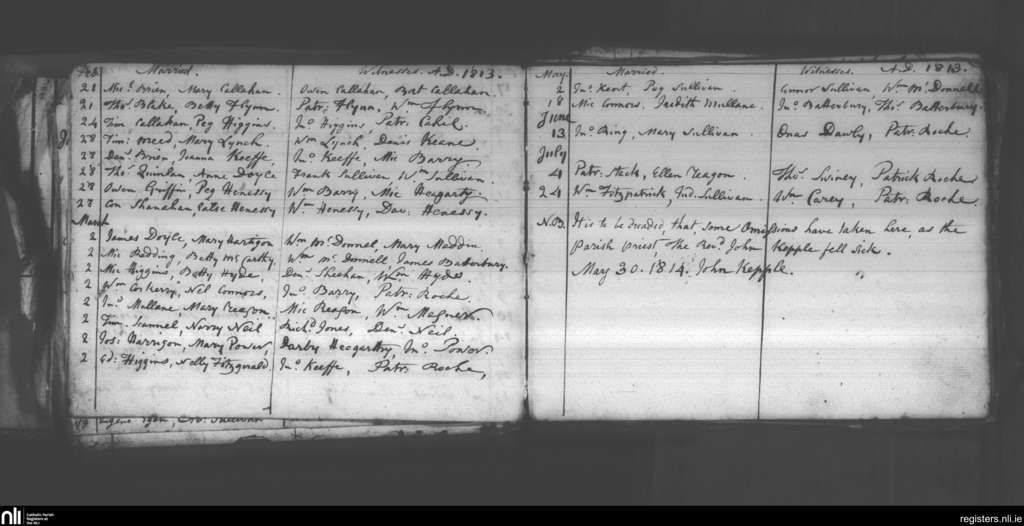 Feb. Married. Witnesses. A.D. 1813.
21 Mic. Brien, Mary Callahan. Owen Callahan, Bart Callahan.
21 Tho.s Blake, Betty Flynn. Patr: Flynn, Wm Flynn.
24 Tim Callahan, Peg Higgins. Jno Higgins, Patr: Cahil.
28 Tim: Mead, Mary Lynch. Wm Lynch, Denis Keane.
28 Dens Brien, Joanna Keeffe, Jno Keeffe, Mic Barry.
28 Thos Quinlan, Anne Doyle Frank Sullivan, Wm Sullivan.
28 Owen Griffin, Peg Henessy Wm Barry, Mic Heagarty.
28 Con Shanehan, Catse Henessy Wm Henessy, Dav: Henessy.
March
2 James Doyle, Mary Hartigon Wm McDonnel, Mary Maddin.
2 Mic Redding, Betty McCarthy, Wm McDonnell James Batterbury.
2 Mic Higgins, Betty Hyde, Dens Sheehan, Wm Hyde.
2 Wm Coskerry, Nel Connors, Jno Barry, Patr: Roche.
2 Jno Mullane, Mary Reagon. Mic Reagon, Wm Magner.
2 Tim: Scannel, Norry Neil Richd Jones, Dens Neil.
2 Jos: Harrigon, Mary Power, Darby Heogerthy, Jno Power.
2 Ed: Higgins, Nelly Fitzgerald. Jno Keeffe, Patr: Roche,
May. Married. Witnesses. A.D. 1813.
2 Jno Kent, Peg Sullivan. Connor Sullivan, Wm McDonnell
18 Mic Connors, Judith Mullane. Jno Batterbury, Thos Batterbury.
June
13 Jno Ring, Mary Sullivan. Onas Dawly, Patr: Roche
July
4 Patr: Stack, Ellen Reagon. Thos Swiney, Patrick Roche
24 Wm Fitzpatrick, Jud. Sullivan. Wm Carey, Patr: Roche.
N.B. It is to be dreaded, that, some Omissions have taken here, as the
Parish Priest, The Revd John Kepple fell sick.
May 30. 1814. John Kepple.
nli Catholic Parish
Registers at
the NLI
registers.nli.ie